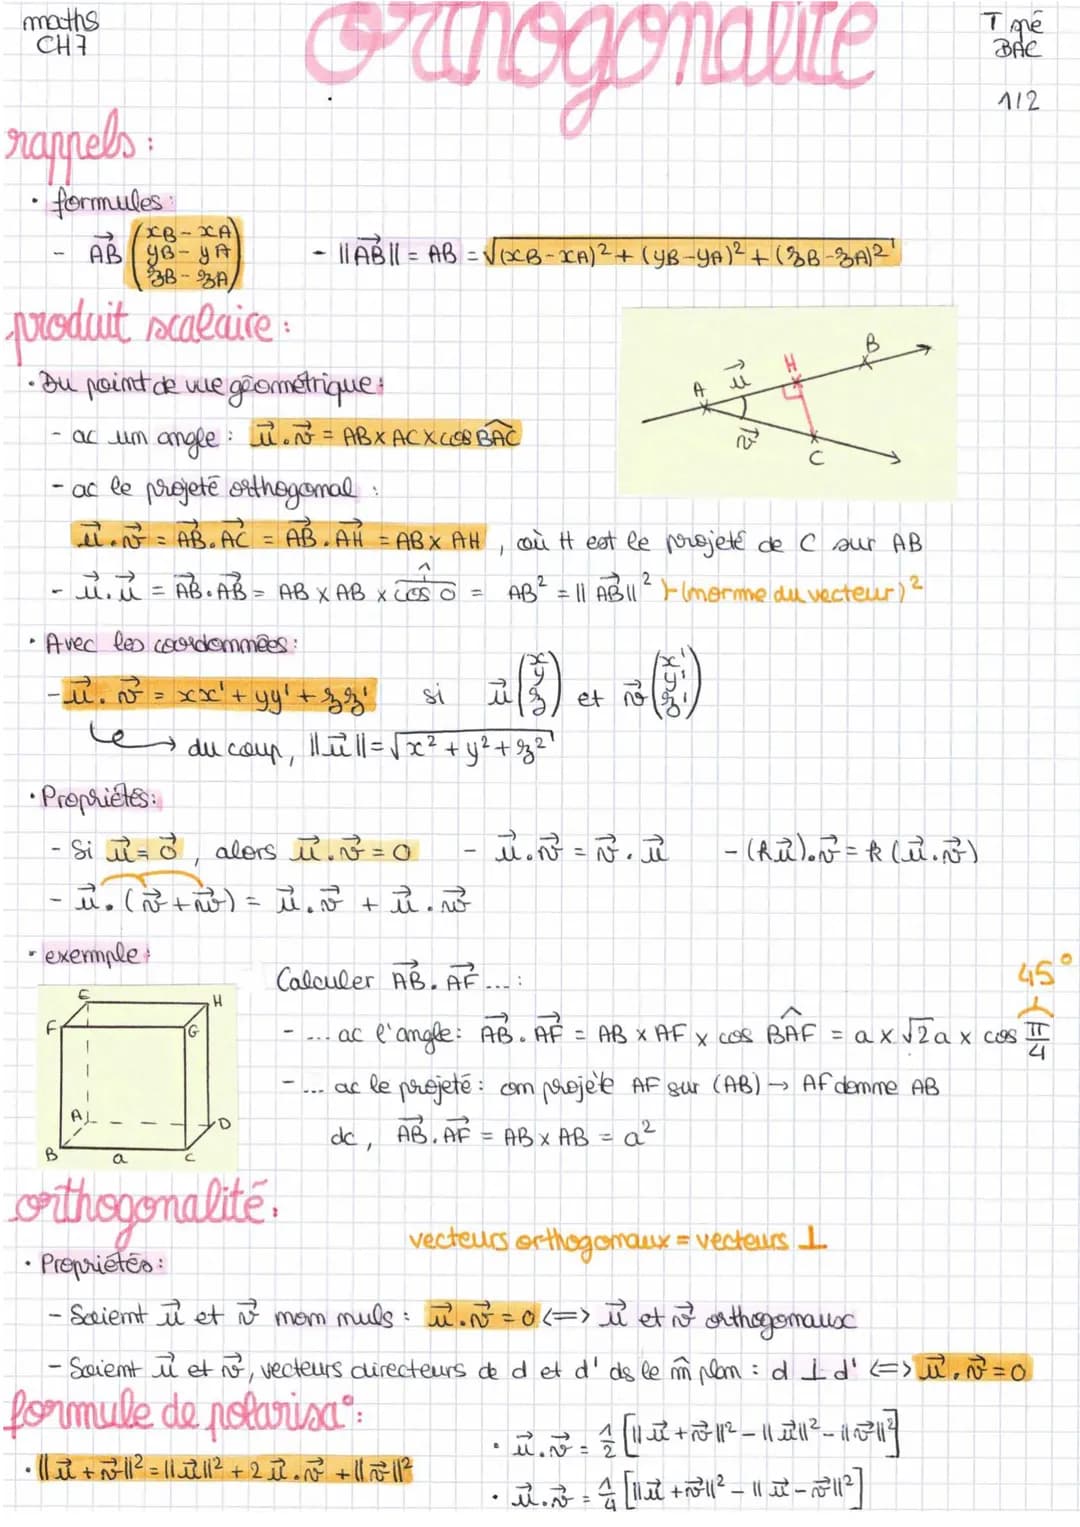 maths
CH7
Orthogonalité
T gné
BAC
1/2
rappels :
• formules :
- AB⃗ (xB - xA / yB - yA / zB - zA)
- ||AB⃗|| = AB = √((xB-xA)² + (yB-yA)² + (zB-zA)²)
produit scalaire :
A u⃗ H B
v⃗ C
• Du point de vue géométrique :
- ac un angle : u⃗.v⃗ = AB x AC x cos BAC^
- ac le projeté orthogonal :
u⃗.v⃗ = AB⃗.AC⃗ = AB⃗.AH⃗ = AB x AH, où H est le projeté de C sur AB
1
- u⃗.u⃗ = AB⃗.AB⃗ = AB x AB x cos 0 = AB² = ||AB⃗||² } (norme du vecteur)²
• Avec les coordonnées :
- u⃗.v⃗ = xx' + yy' + zz' si u⃗ (x / y / z) et v⃗ (x' / y' / z')
↳ du coup, ||u⃗|| = √(x² + y² + z²)
• Propriétés :
- Si u⃗ = 0⃗, alors u⃗.v⃗ = 0 - u⃗.v⃗ = v⃗.u⃗ - (ku⃗).v⃗ = k(u⃗.v⃗)
- u⃗.(v⃗ + w⃗) = u⃗.v⃗ + u⃗.w⃗
• exemple :
E H
F G
A D
B a C
Calculer AB⃗.AF⃗ ... :
45°
- ... ac l'angle : AB⃗.AF⃗ = AB x AF x cos BAF^ = a x √2a x cos π/4
- ... ac le projeté : on projète AF sur (AB) → AF donne AB
dc, AB⃗.AF⃗ = AB x AB = a²
orthogonalité.
vecteurs orthogonaux = vecteurs ⊥
• Propriétés :
- Soient u⃗ et v⃗ non nuls : u⃗.v⃗ = 0 <=> u⃗ et v⃗ orthogonaux
- Soient u⃗ et v⃗, vecteurs directeurs de d et d' ds le m̂ plan : d ⊥ d' <=> u⃗.v⃗ = 0
formule de polarisa° :
• ||u⃗ + v⃗||² = ||u⃗||² + 2 u⃗.v⃗ + ||v⃗||²
• u⃗.v⃗ = 1/2 [||u⃗ + v⃗||² - ||u⃗||² - ||v⃗||²]
• u⃗.v⃗ = 1/4 [||u⃗ + v⃗||² - ||u⃗ - v⃗||²]